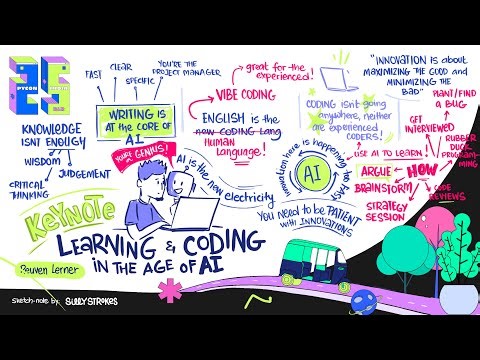 25
PYCON
INDIA
FAST
CLEAR
SPECIFIC
YOU'RE THE
PROJECT MANAGER
WRITING IS
AT THE CORE OF
AI
KNOWLEDGE
ISN'T ENOUGH
WISDOM
JUDGEMENT
CRITICAL
THINKING
YOU'RE A GENIUS!
AI is the new electricity
great for the
experienced!
VIBE CODING
ENGLISH is the
new CODING Lang
HUMAN
Language!
CODING isn't going
anywhere, neither
are experienced
CODERS!
innovation here is happening too FAST
AI
YOU NEED to be PATIENT
with INNOVATIONS
"INNOVATION is about
MAXIMIZING THE GOOD and
MINIMIZING THE
BAD"
PLANT/FIND
A BUG
GET
INTERVIEWED
RUBBER
DUCK
PROGRAM-
MING
USE AI TO LEARN!
ARGUE
HOW
BRAINSTORM
CODE
REVIEWS
STRATEGY
SESSION
KEYNOTE
LEARNING & CODING
IN THE AGE OF AI
Reuven Lerner
sketch-note by: SULLYSTROKES